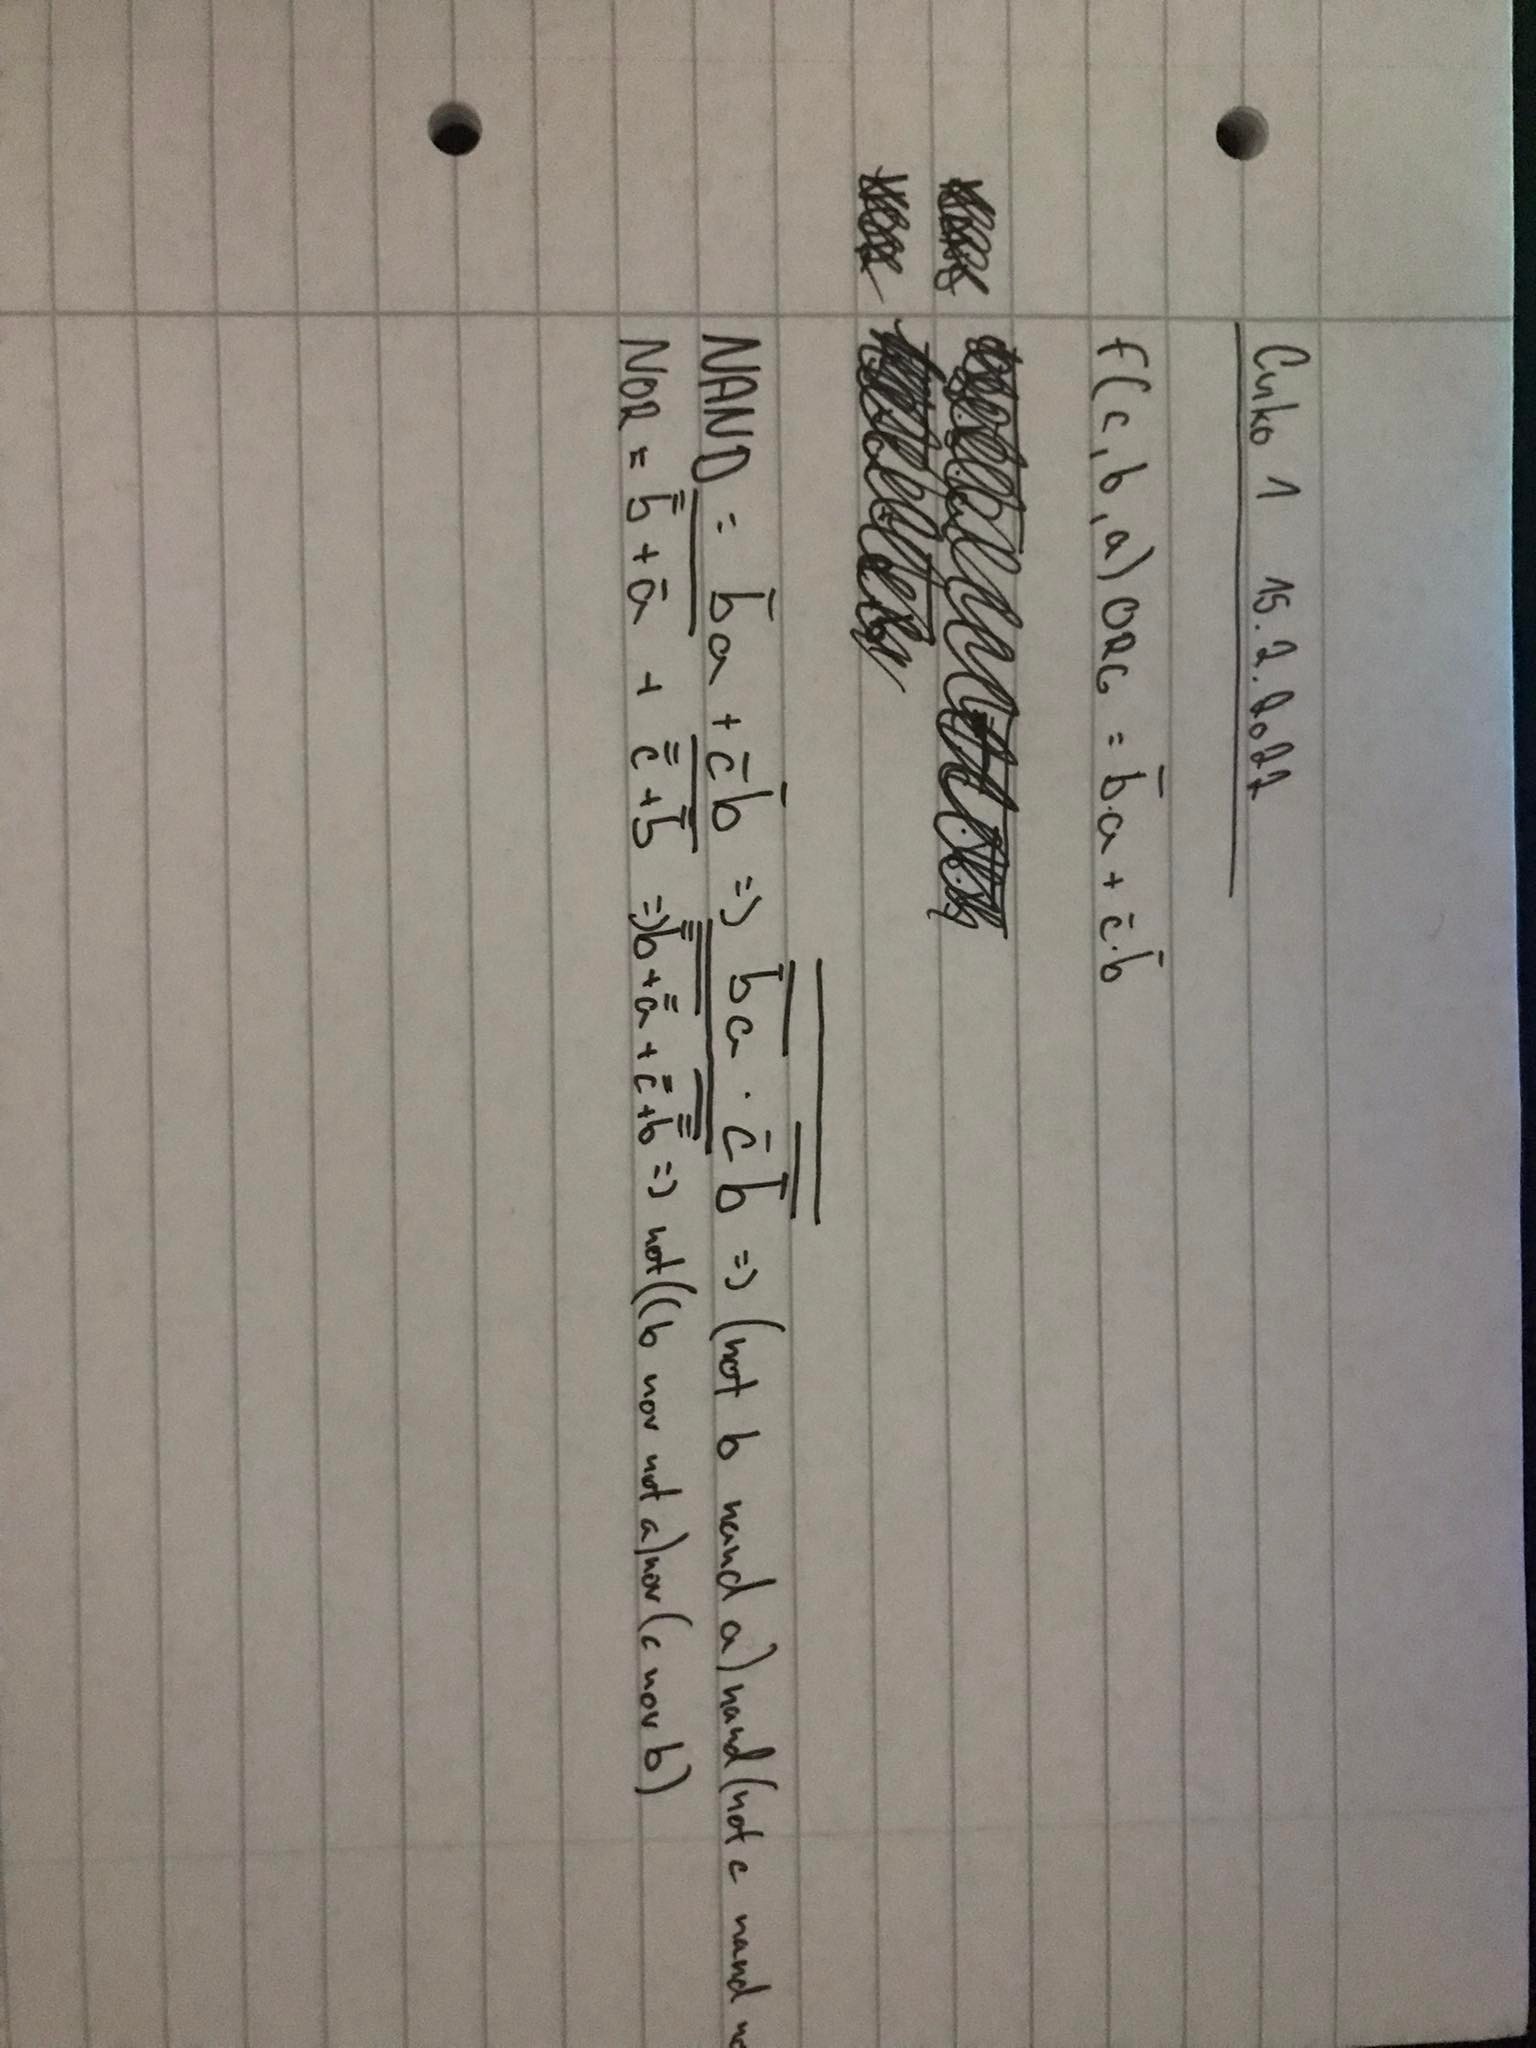 Cviko 1 15.2.2022
f(c,b,a) ORG = b̅.a + c̅.b̅
NAND = b̅a + c̅b̅ => \overline{\overline{b̅a} · \overline{c̅b̅}} => (not b nand a) nand (not c nand
NOR = \overline{b̿ + a̅} + \overline{c̿ + b̿} => \overline{\overline{\overline{b̿ + a̅} + \overline{c̿ + b̿}}} => not((b nor not a) nor (c nor b)